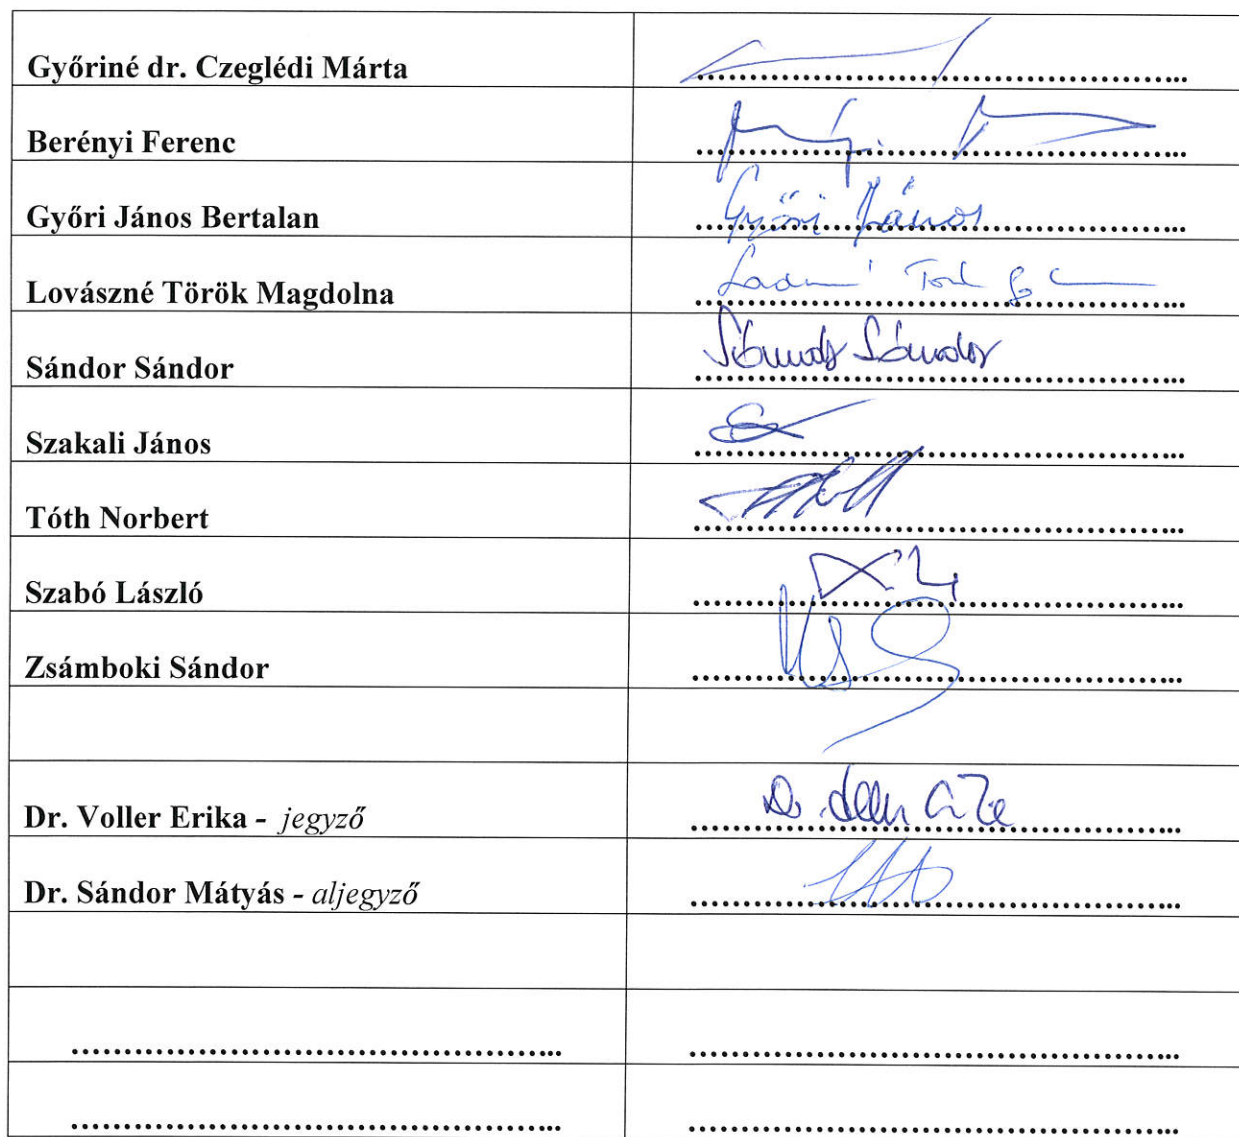 Győriné dr. Czeglédi Márta
Berényi Ferenc
Győri János Bertalan Győri János
Lovászné Török Magdolna
Sándor Sándor Sándor Sándor
Szakali János
Tóth Norbert
Szabó László
Zsámboki Sándor
Dr. Voller Erika - jegyző
Dr. Sándor Mátyás - aljegyző